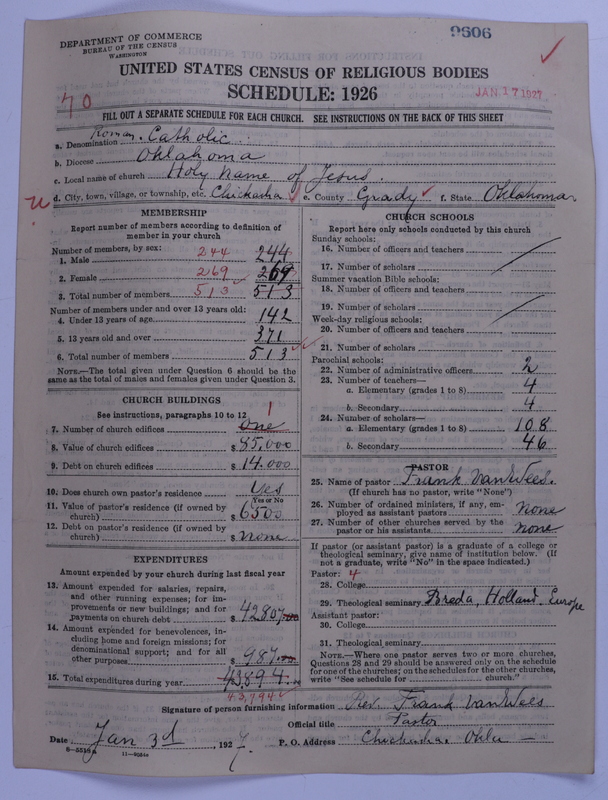 9606
DEPARTMENT OF COMMERCE
BUREAU OF THE CENSUS
WASHINGTON
UNITED STATES CENSUS OF RELIGIOUS BODIES
SCHEDULE: 1926
JAN 17 1927
70
FILL OUT A SEPARATE SCHEDULE FOR EACH CHURCH. SEE INSTRUCTIONS ON THE BACK OF THIS SHEET
a. Denomination Roman Catholic
b. Diocese Oklahoma
c. Local name of church Holy Name of Jesus.
d. City, town, village, or township, etc. Chickasha e. County Grady f. State Oklahoma
MEMBERSHIP
Report number of members according to definition of
member in your church
Number of members, by sex:
1. Male 244 244
2. Female 269 269
3. Total number of members 513 513
Number of members under and over 13 years old:
4. Under 13 years of age 142
5. 13 years old and over 371
6. Total number of members 513
NOTE.—The total given under Question 6 should be the
same as the total of males and females given under Question 3.
CHURCH BUILDINGS
See instructions, paragraphs 10 to 12
7. Number of church edifices one 1
8. Value of church edifices $ 85,000
9. Debt on church edifices $ 14,000
10. Does church own pastor's residence yes
Yes or No
11. Value of pastor's residence (if owned by
church) $ 6500
12. Debt on pastor's residence (if owned by
church) $ none
EXPENDITURES
Amount expended by your church during last fiscal year
13. Amount expended for salaries, repairs,
and other running expenses; for im-
provements or new buildings; and for
payments on church debt $ 42807.00
14. Amount expended for benevolences, in-
cluding home and foreign missions; for
denominational support; and for all
other purposes $ 987.00
15. Total expenditures during year 43894.
43,794
CHURCH SCHOOLS
Report here only schools conducted by this church
Sunday schools:
16. Number of officers and teachers
17. Number of scholars
Summer vacation Bible schools:
18. Number of officers and teachers
19. Number of scholars
Week-day religious schools:
20. Number of officers and teachers
21. Number of scholars
Parochial schools:
22. Number of administrative officers 2
23. Number of teachers—
a. Elementary (grades 1 to 8) 4
b. Secondary 4
24. Number of scholars—
a. Elementary (grades 1 to 8) 108
b. Secondary 46
PASTOR
25. Name of pastor Frank VanWees.
(If church has no pastor, write "None")
26. Number of ordained ministers, if any, em-
ployed as assistant pastors none
27. Number of other churches served by the
pastor or his assistants none
If pastor (or assistant pastor) is a graduate of a college or
theological seminary, give name of institution below. (If
not a graduate, write "No" in the space indicated.)
Pastor: 4
28. College
29. Theological seminary Breda, Holland, Europe
Assistant pastor:
30. College
31. Theological seminary
NOTE.—Where one pastor serves two or more churches,
Questions 28 and 29 should be answered only on the schedule
for one of the churches; on the schedules for the other churches,
write "See schedule for church."
Signature of person furnishing information Rev. Frank VanWees
Official title Pastor
Date Jan 3d, 1927 P. O. Address Chickasha Okla